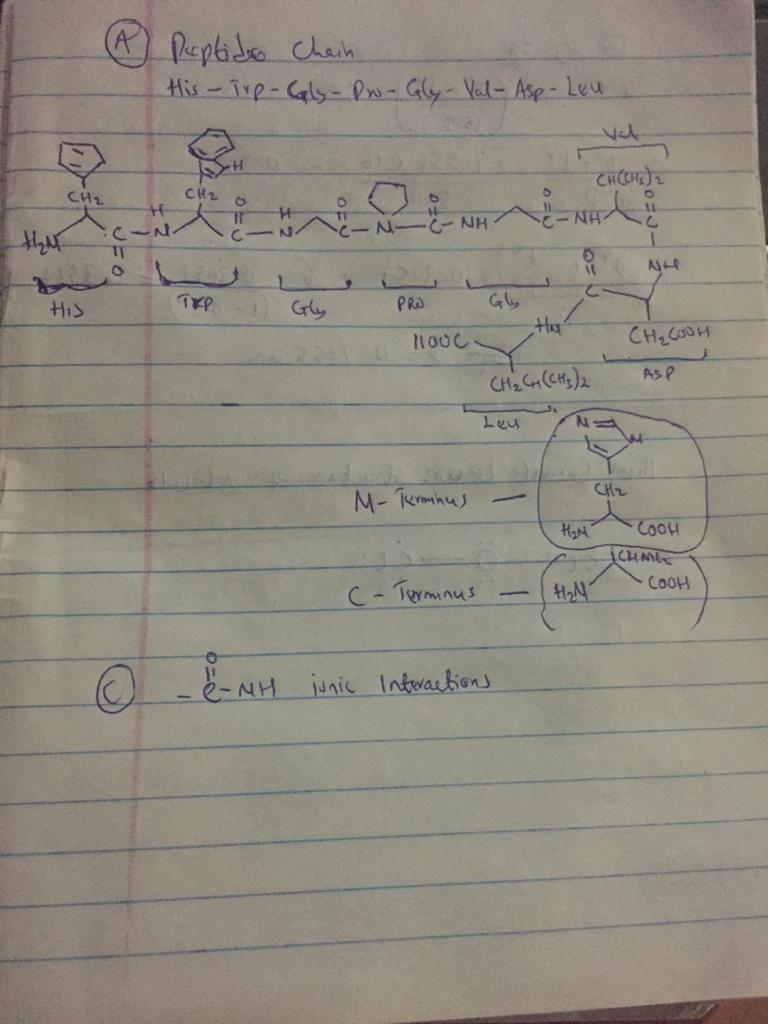 A Peptides Chain
His - Trp - Gly - Pro - Gly - Val - Asp - Leu
Val
H CH(CH3)2
CH2 CH2 O O O O O
H2N C N C N C N C NH C NH C
O H H
HIS TRP Gly PRO Gly O NH
C
HOOC HN CH2COOH
CH2CH(CH3)2 ASP
Leu
N N
CH2
N-Terminus - H2N COOH
C-Terminus - H2N COOH
O
C - C - NH ionic Interactions